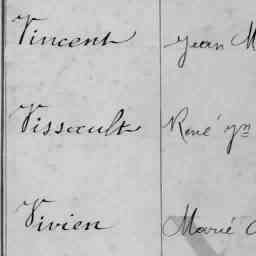 Vincent Jean M
Vissault René yn
Vivien Marie